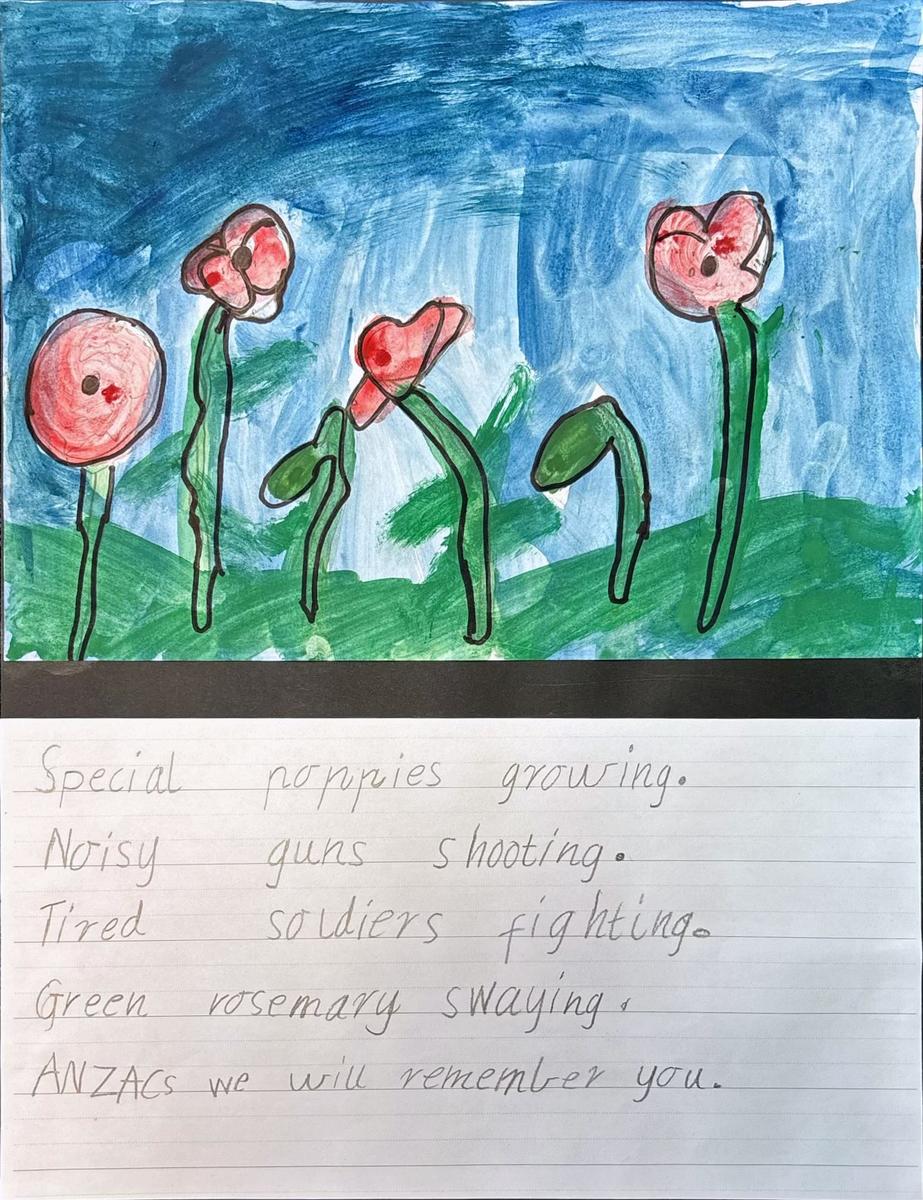 Special poppies growing.
Noisy guns shooting.
Tired soldiers fighting.
Green rosemary swaying.
ANZACs we will remember you.